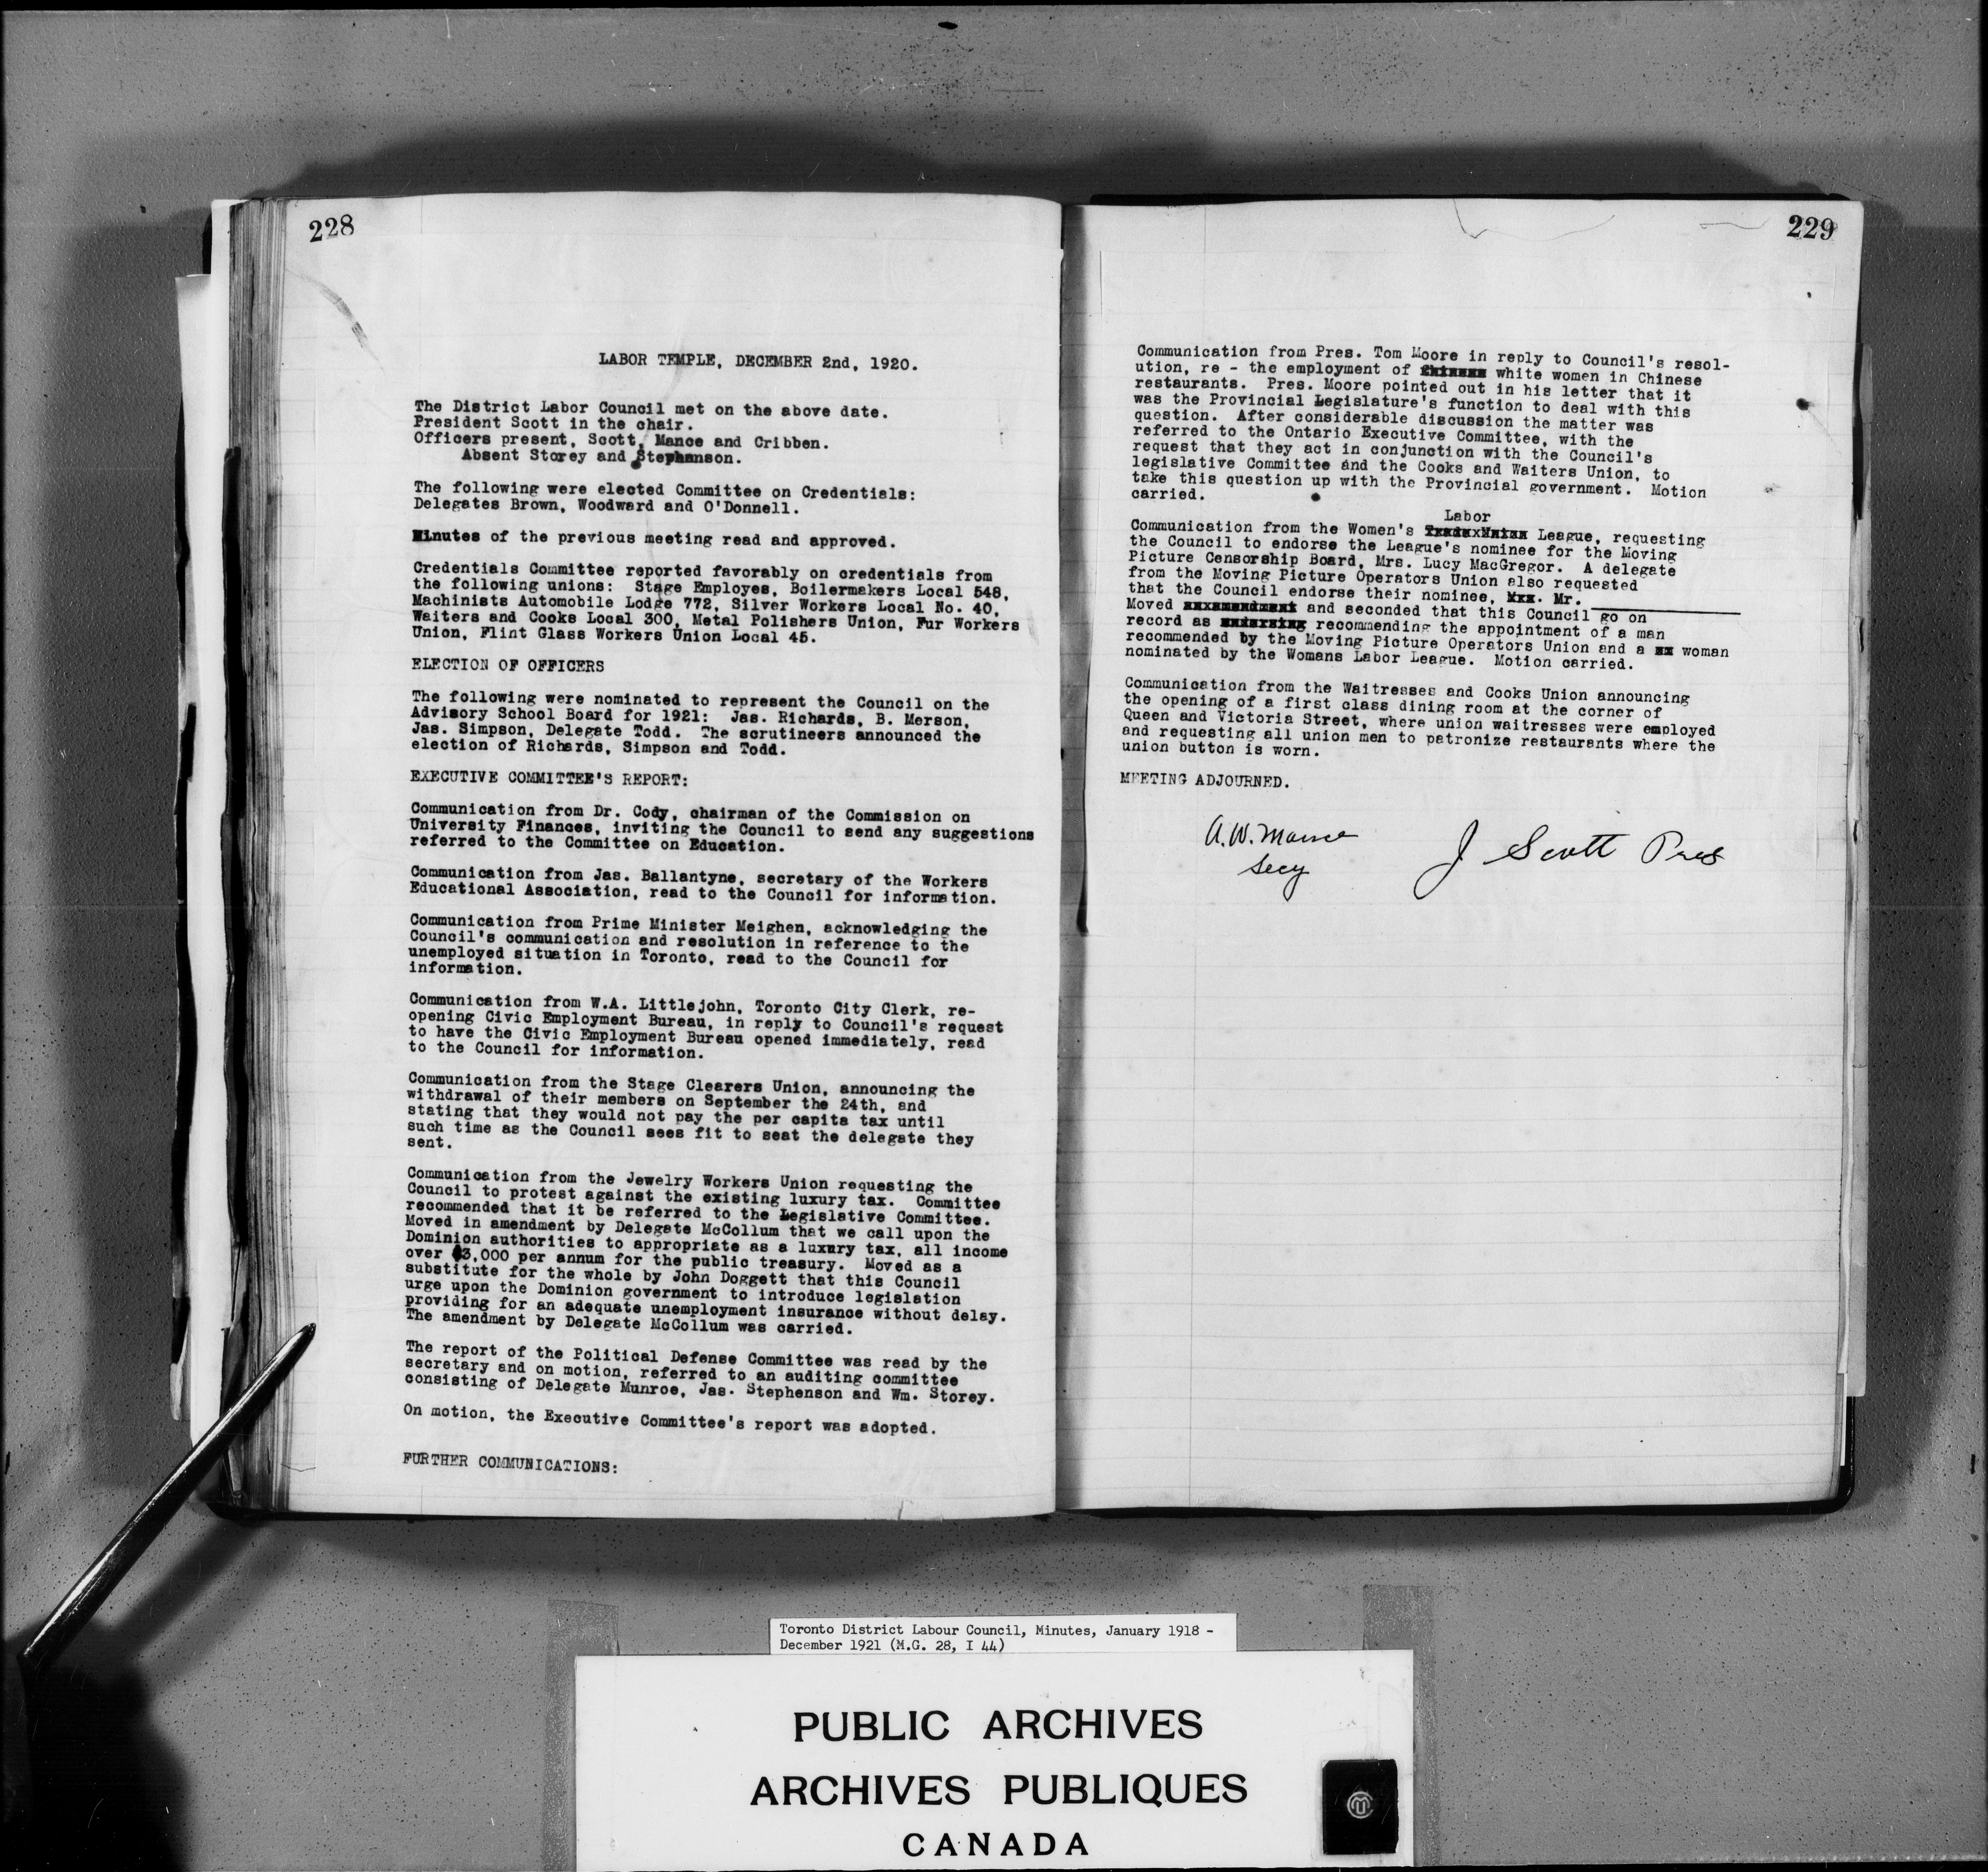 228
LABOR TEMPLE, DECEMBER 2nd, 1920.
The District Labor Council met on the above date.
President Scott in the chair.
Officers present, Scott, Mance and Cribben.
Absent Storey and Stephanson.
The following were elected Committee on Credentials:
Delegates Brown, Woodward and O'Donnell.
Minutes of the previous meeting read and approved.
Credentials Committee reported favorably on credentials from
the following unions: Stage Employes, Boilermakers Local 548,
Machinists Automobile Lodge 772, Silver Workers Local No. 40,
Waiters and Cooks Local 300, Metal Polishers Union, Fur Workers
Union, Flint Glass Workers Union Local 45.
ELECTION OF OFFICERS
The following were nominated to represent the Council on the
Advisory School Board for 1921: Jas. Richards, B. Merson,
Jas. Simpson, Delegate Todd. The scrutineers announced the
election of Richards, Simpson and Todd.
EXECUTIVE COMMITTEE'S REPORT:
Communication from Dr. Cody, chairman of the Commission on
University Finances, inviting the Council to send any suggestions
referred to the Committee on Education.
Communication from Jas. Ballantyne, secretary of the Workers
Educational Association, read to the Council for information.
Communication from Prime Minister Meighen, acknowledging the
Council's communication and resolution in reference to the
unemployed situation in Toronto, read to the Council for
information.
Communication from W.A. Littlejohn, Toronto City Clerk, re-
opening Civic Employment Bureau, in reply to Council's request
to have the Civic Employment Bureau opened immediately, read
to the Council for information.
Communication from the Stage Clearers Union, announcing the
withdrawal of their members on September the 24th, and
stating that they would not pay the per capita tax until
such time as the Council sees fit to seat the delegate they
sent.
Communication from the Jewelry Workers Union requesting the
Council to protest against the existing luxury tax. Committee
recommended that it be referred to the Legislative Committee.
Moved in amendment by Delegate McCollum that we call upon the
Dominion authorities to appropriate as a luxury tax, all income
over $3,000 per annum for the public treasury. Moved as a
substitute for the whole by John Doggett that this Council
urge upon the Dominion government to introduce legislation
providing for an adequate unemployment insurance without delay.
The amendment by Delegate McCollum was carried.
The report of the Political Defense Committee was read by the
secretary and on motion, referred to an auditing committee
consisting of Delegate Munroe, Jas. Stephenson and Wm. Storey.
On motion, the Executive Committee's report was adopted.
FURTHER COMMUNICATIONS:
229
Communication from Pres. Tom Moore in reply to Council's resol-
ution, re - the employment of white women in Chinese
restaurants. Pres. Moore pointed out in his letter that it
was the Provincial Legislature's function to deal with this
question. After considerable discussion the matter was
referred to the Ontario Executive Committee, with the
request that they act in conjunction with the Council's
legislative Committee and the Cooks and Waiters Union, to
take this question up with the Provincial government. Motion
carried.
Labor
Communication from the Women's League, requesting
the Council to endorse the League's nominee for the Moving
Picture Censorship Board, Mrs. Lucy MacGregor. A delegate
from the Moving Picture Operators Union also requested
that the Council endorse their nominee, Mr.
Moved and seconded that this Council go on
record as recommending the appointment of a man
recommended by the Moving Picture Operators Union and a woman
nominated by the Womans Labor League. Motion carried.
Communication from the Waitresses and Cooks Union announcing
the opening of a first class dining room at the corner of
Queen and Victoria Street, where union waitresses were employed
and requesting all union men to patronize restaurants where the
union button is worn.
MEETING ADJOURNED.
A.W. Mance
Secy
J Scott Pres
Toronto District Labour Council, Minutes, January 1918 -
December 1921 (M.G. 28, I 44)
PUBLIC ARCHIVES
ARCHIVES PUBLIQUES
CANADA